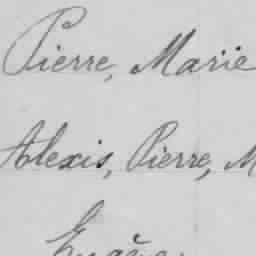 Pierre, Marie
Alexis, Pierre, M
Eugène